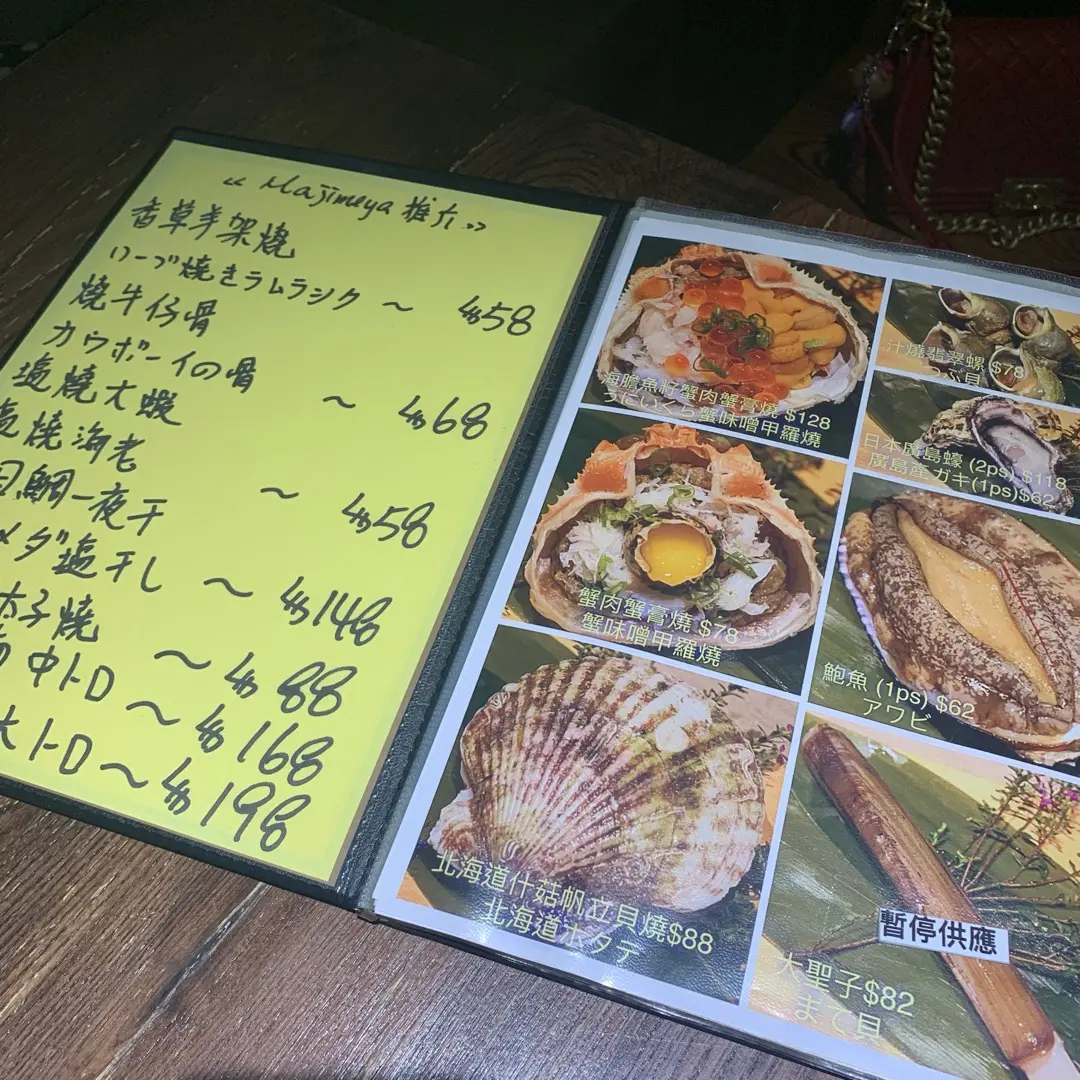 《Majimeya 推介》
香草羊架燒
ローブ焼きラムラシク ～ $58
燒牛仔骨
カウボーイの骨 ～ $68
塩燒大蝦
塩燒海老 ～ $58
目鯛一夜干
メダ塩干し ～ $148
子燒 ～ $88
中トロ ～ $168
大トロ ～ $198
海膽魚籽蟹肉蟹膏燒 $128
うにいくら蟹味噌甲羅燒
蟹肉蟹膏燒 $78
蟹味噌甲羅燒
北海道什菇帆立貝燒$88
北海道ホタテ
汁燒翡翠螺 $78
つぶ貝
日本廣島蠔 (2ps) $118
廣島産ガキ(1ps)$62
鮑魚 (1ps) $62
アワビ
暫停供應
大聖子$82
まて貝